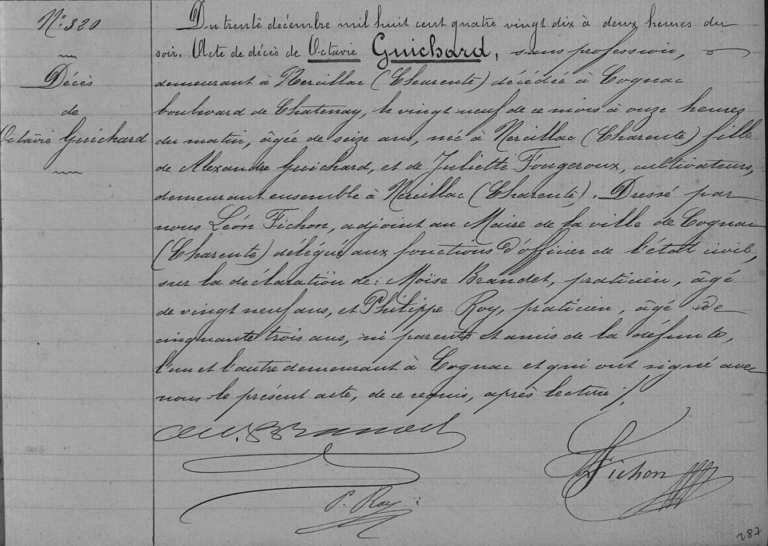 N°: 320
Décès
de
Octavie Guichard
Du trente décembre mil huit cent quatre vingt dix à deux heures du
soir. Acte de décès de Octavie Guichard, sans profession,
demeurant à Nercillac (Charente) décédée à Cognac
boulevard de Chatenay, le vingt neuf de ce mois à onze heures
du matin, âgée de seize ans, née à Nercillac (Charente) fille
de Alexandre Guichard, et de Juliette Fougeroux, cultivateurs,
demeurant ensemble à Nercillac (Charente). Dressé par
nous Léon Fichon, adjoint au Maire de la ville de Cognac
(Charente) délégué aux fonctions d'officier de l'état civil,
sur la déclaration de: Moïse Beandet, praticien, âgé
de vingt neuf ans, et Philippe Roy, praticien, âgé de
cinquante trois ans, ni parents et amis de la défunte,
l'un et l'autre demeurant à Cognac et qui ont signé avec
nous le présent acte, de ce requis, après lecture ./.
Fichon
P. Roy
287